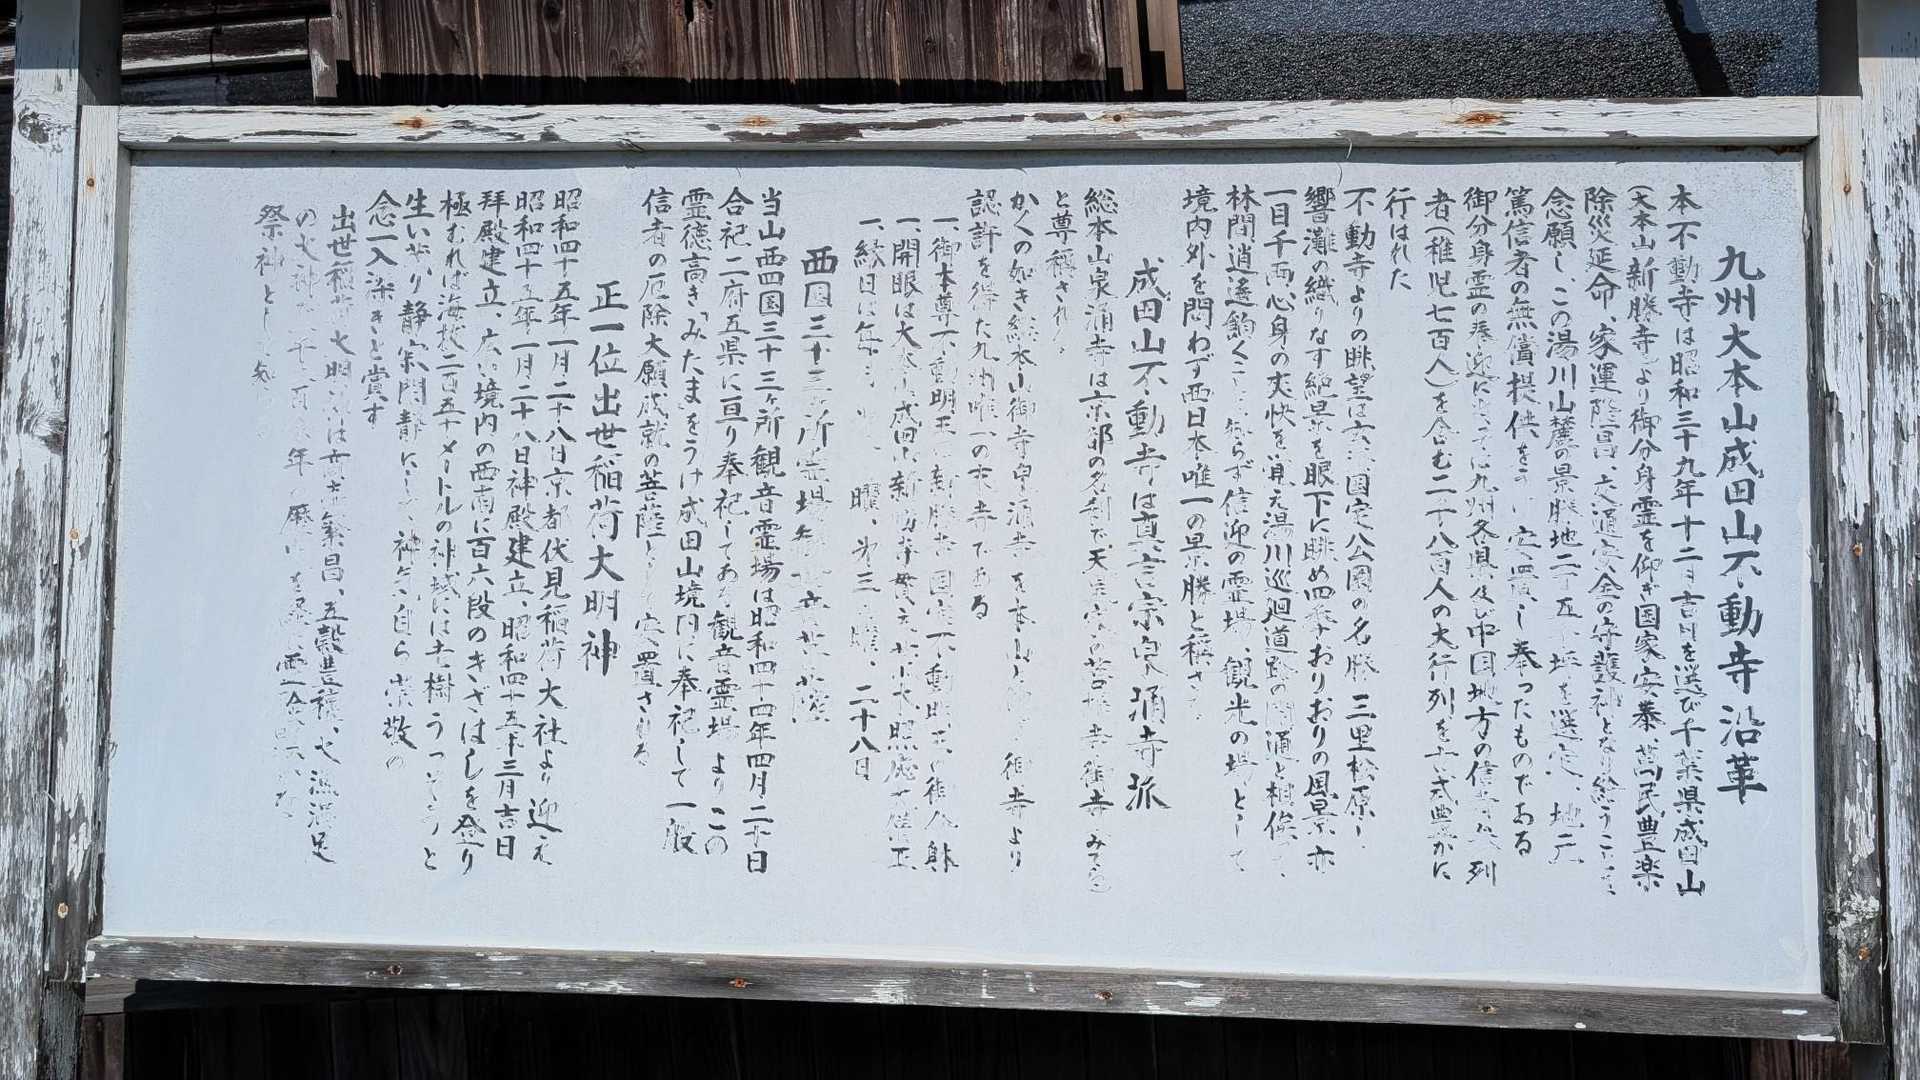 九州大本山成田山不動寺沿革
本不動寺は昭和三十九年十二月吉日を選び千葉県成田山
(大本山新勝寺)より御分身霊を仰ぎ国家安泰萬民豊楽
除災延命、家運隆昌、交通安全の守護神となり給うことを
念願し、この湯川山麓の景勝地二千五百坪を選定、地元
篤信者の無償提供をうけ安置し奉ったものである
御分身霊の奉迎に当っては九州各県及び中国地方の信者参列
者(稚児七百人)を含む二千八百人の大行列を古式豊かに
行はれた
不動寺よりの眺望は玄海国定公園の名勝三里松原
響灘の織りなす絶景を眼下に眺め四季おりおりの風景亦
一目千両心身の爽快を覚え湯川巡廻道路の開通と相俟って
林間逍遙飽くことを知らず信迎の霊場、観光の場として
境内外を問わず西日本唯一の景勝と称さる
成田山不動寺は真言宗泉涌寺派
総本山泉涌寺は京都の名刹で天皇家の菩提寺御寺みてらと
と尊称され
かくの如き総本山御寺泉涌寺を本山と御寺より
認許を得た九州唯一の大寺である
一、御本尊不動明王は新勝寺国宝不動明王の御分躰
一、開眼は大本山成田山新勝寺貫主 照應大僧正
一、縁日は毎月 日曜、第三日曜、二十八日
西国三十三所霊場 観世音菩薩
当山西国三十三ヶ所観音霊場は昭和四十四年四月二十日
合祀二府五県に亘り奉祀してある観音霊場よりこの
霊徳高き「みたま」をうけ成田山境内に奉祀して一般
信者の厄除大願成就の菩薩として安置される
正一位出世稲荷大明神
昭和四十五年一月二十八日京都伏見稲荷大社より迎え
昭和四十五年一月二十八日神殿建立、昭和四十五年三月吉日
拝殿建立、広い境内の西南に百六段のきざはしを登り
極むれば海抜二百五十メートルの神域には老樹うっそうと
生い茂り静寂閑静にして神気自ら崇敬の
念一入深きと賞す
出世稲荷大明神は商売繁昌、五穀豊穣、大漁満足
の火神 千六百余年 歴史を 霊験
祭神とし